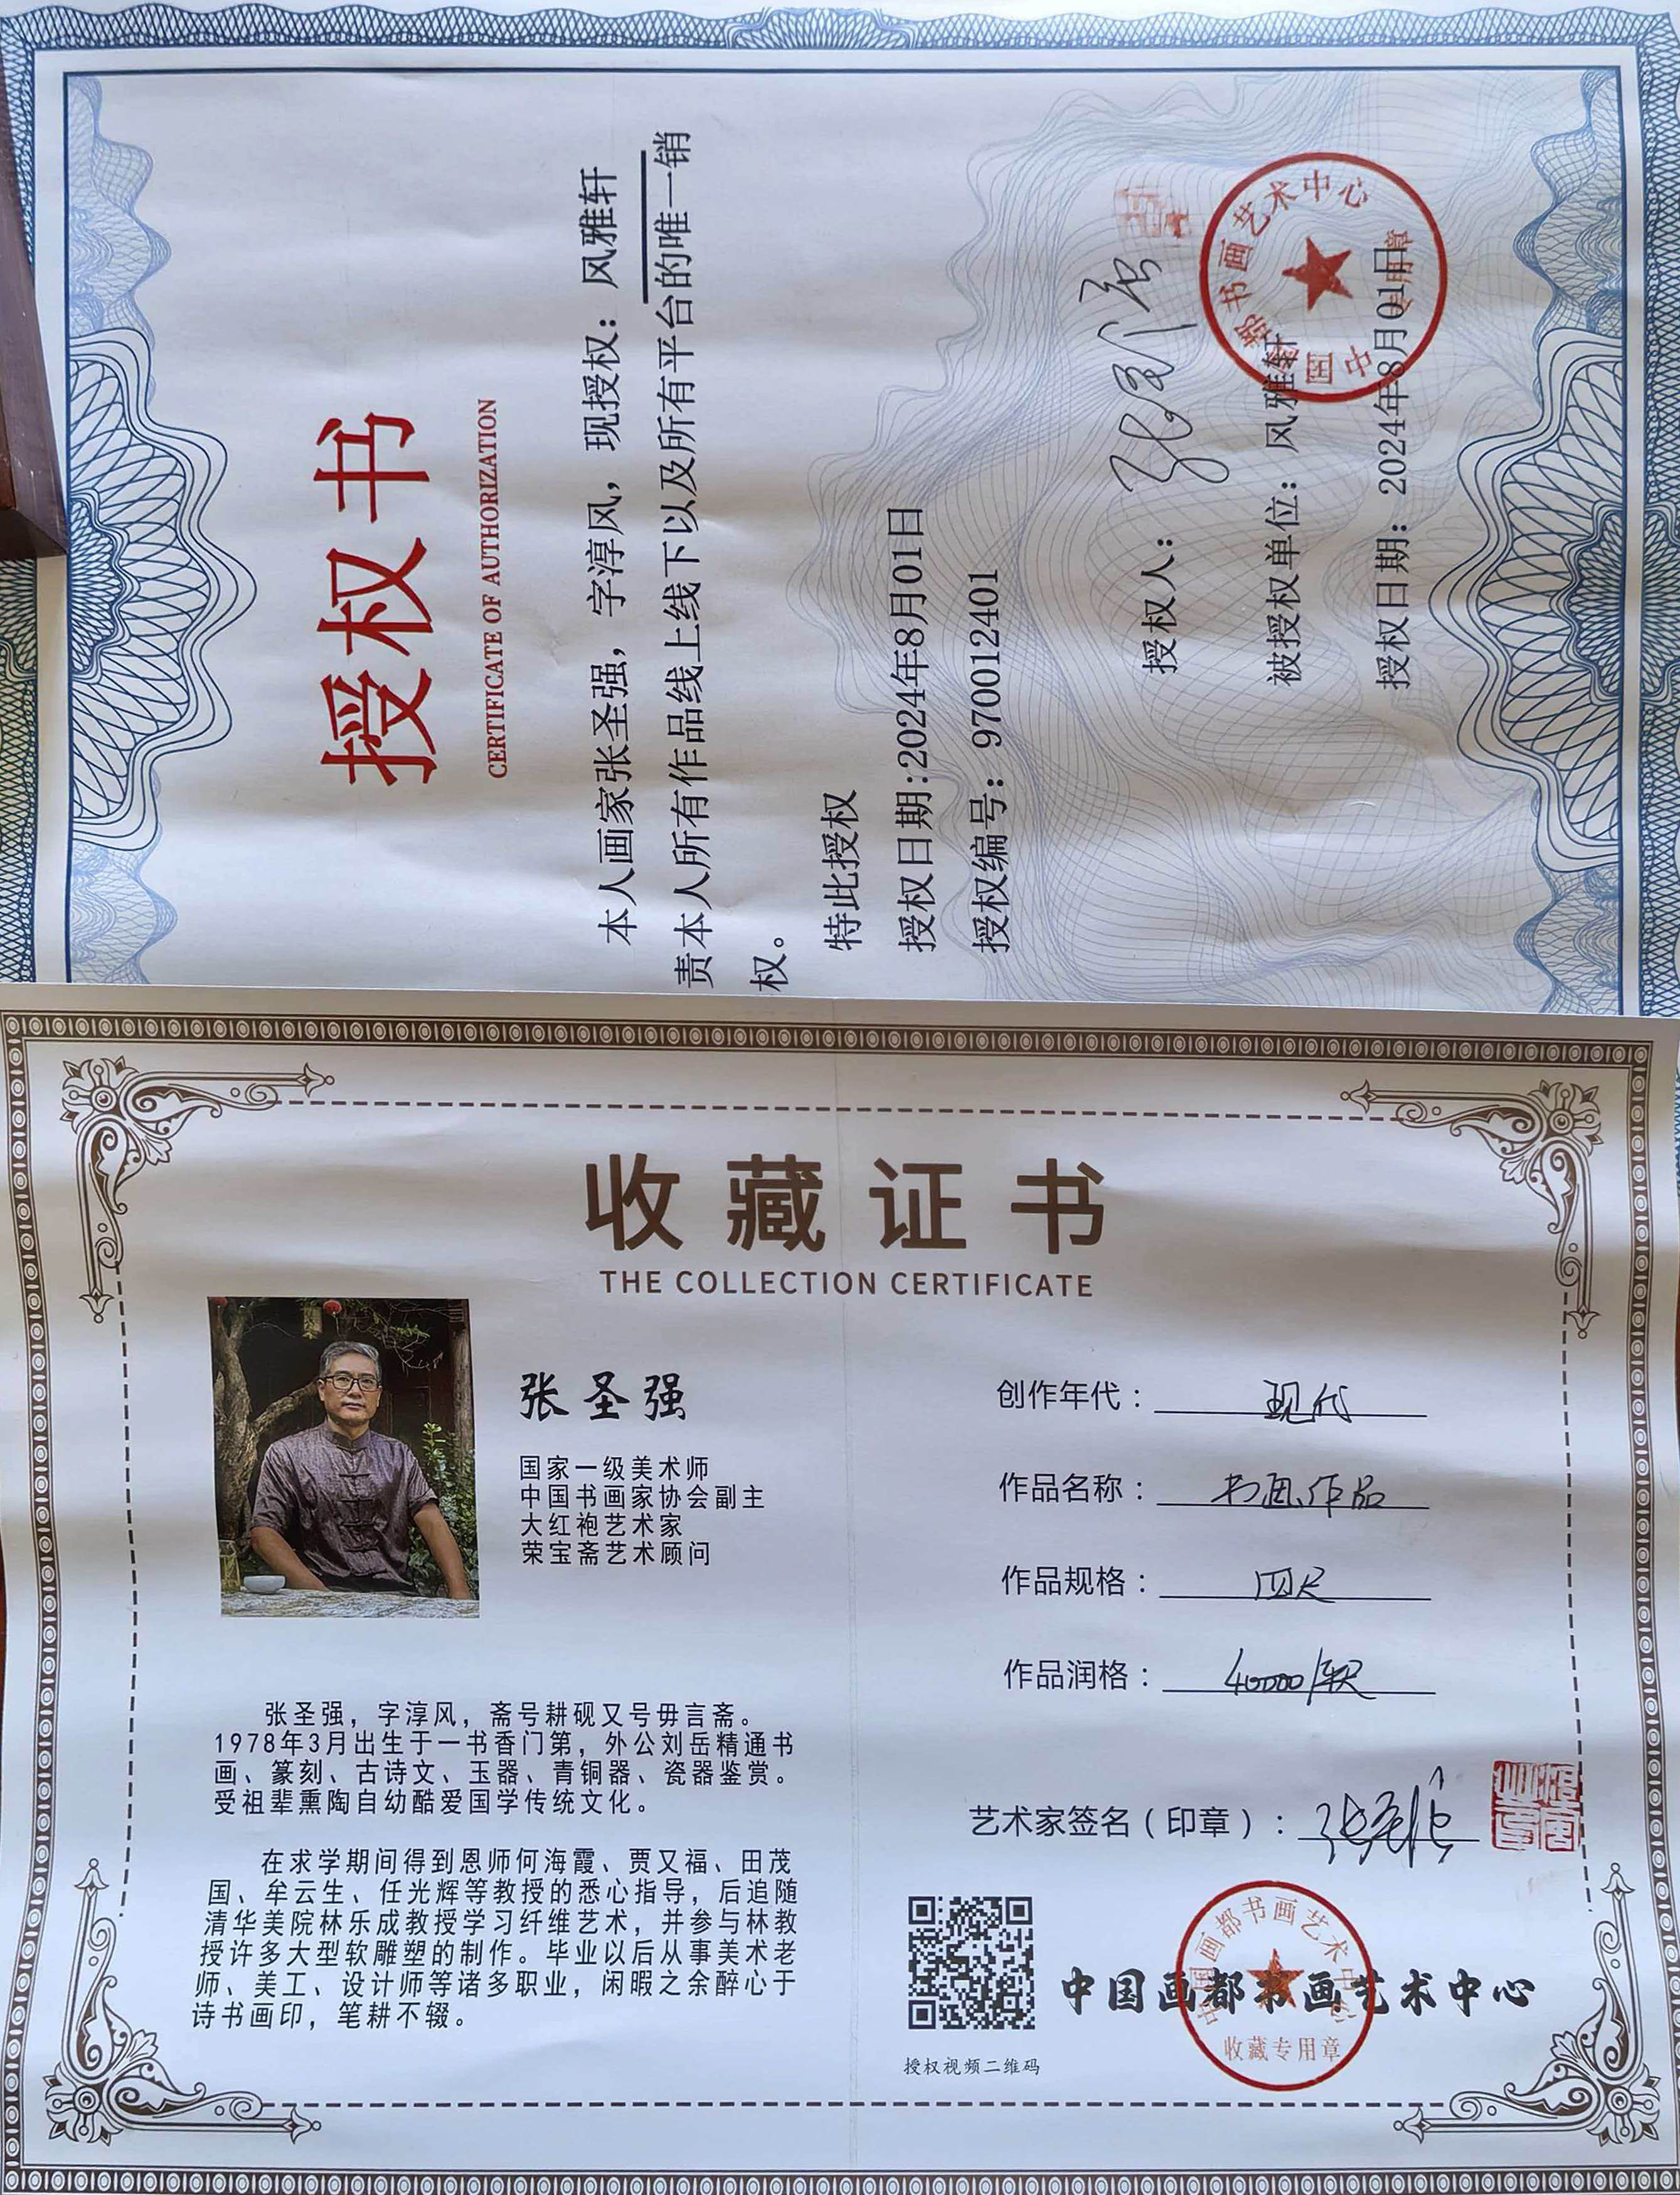 授权书
CERTIFICATE OF AUTHORIZATION
本人画家张圣强，字淳风，现授权：风雅轩
责本人所有作品线上线下以及所有平台的唯一销
权。
特此授权
授权日期:2024年8月01日
授权编号：970012401
授权人：张圣强
被授权单位：风雅轩
授权日期：2024年8月01日
中国画都书画艺术中心
专用章
收藏证书
THE COLLECTION CERTIFICATE
张圣强
国家一级美术师
中国书画家协会副主
大红袍艺术家
荣宝斋艺术顾问
张圣强，字淳风，斋号耕砚又号毋言斋。
1978年3月出生于一书香门第，外公刘岳精通书
画、篆刻、古诗文、玉器、青铜器、瓷器鉴赏。
受祖辈熏陶自幼酷爱国学传统文化。
在求学期间得到恩师何海霞、贾又福、田茂
国、牟云生、任光辉等教授的悉心指导，后追随
清华美院林乐成教授学习纤维艺术，并参与林教
授许多大型软雕塑的制作。毕业以后从事美术老
师、美工、设计师等诸多职业，闲暇之余醉心于
诗书画印，笔耕不辍。
创作年代：现代
作品名称：书画作品
作品规格：四尺
作品润格：40000/
艺术家签名（印章）：张圣强
授权视频二维码
中国画都书画艺术中心
中国画都书画艺术中心
收藏专用章